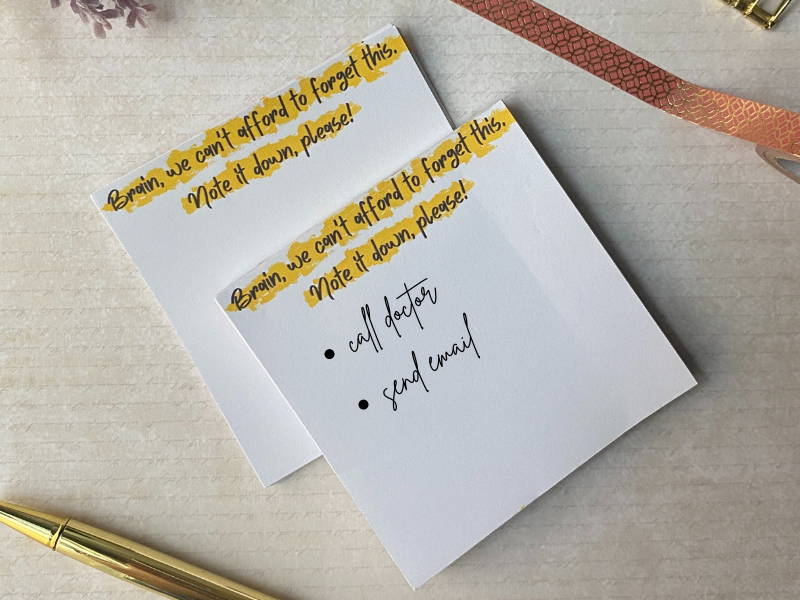 Brain, we can't afford to forget this.
Note it down, please!
Brain, we can't afford to forget this.
Note it down, please!
• call doctor
• send email